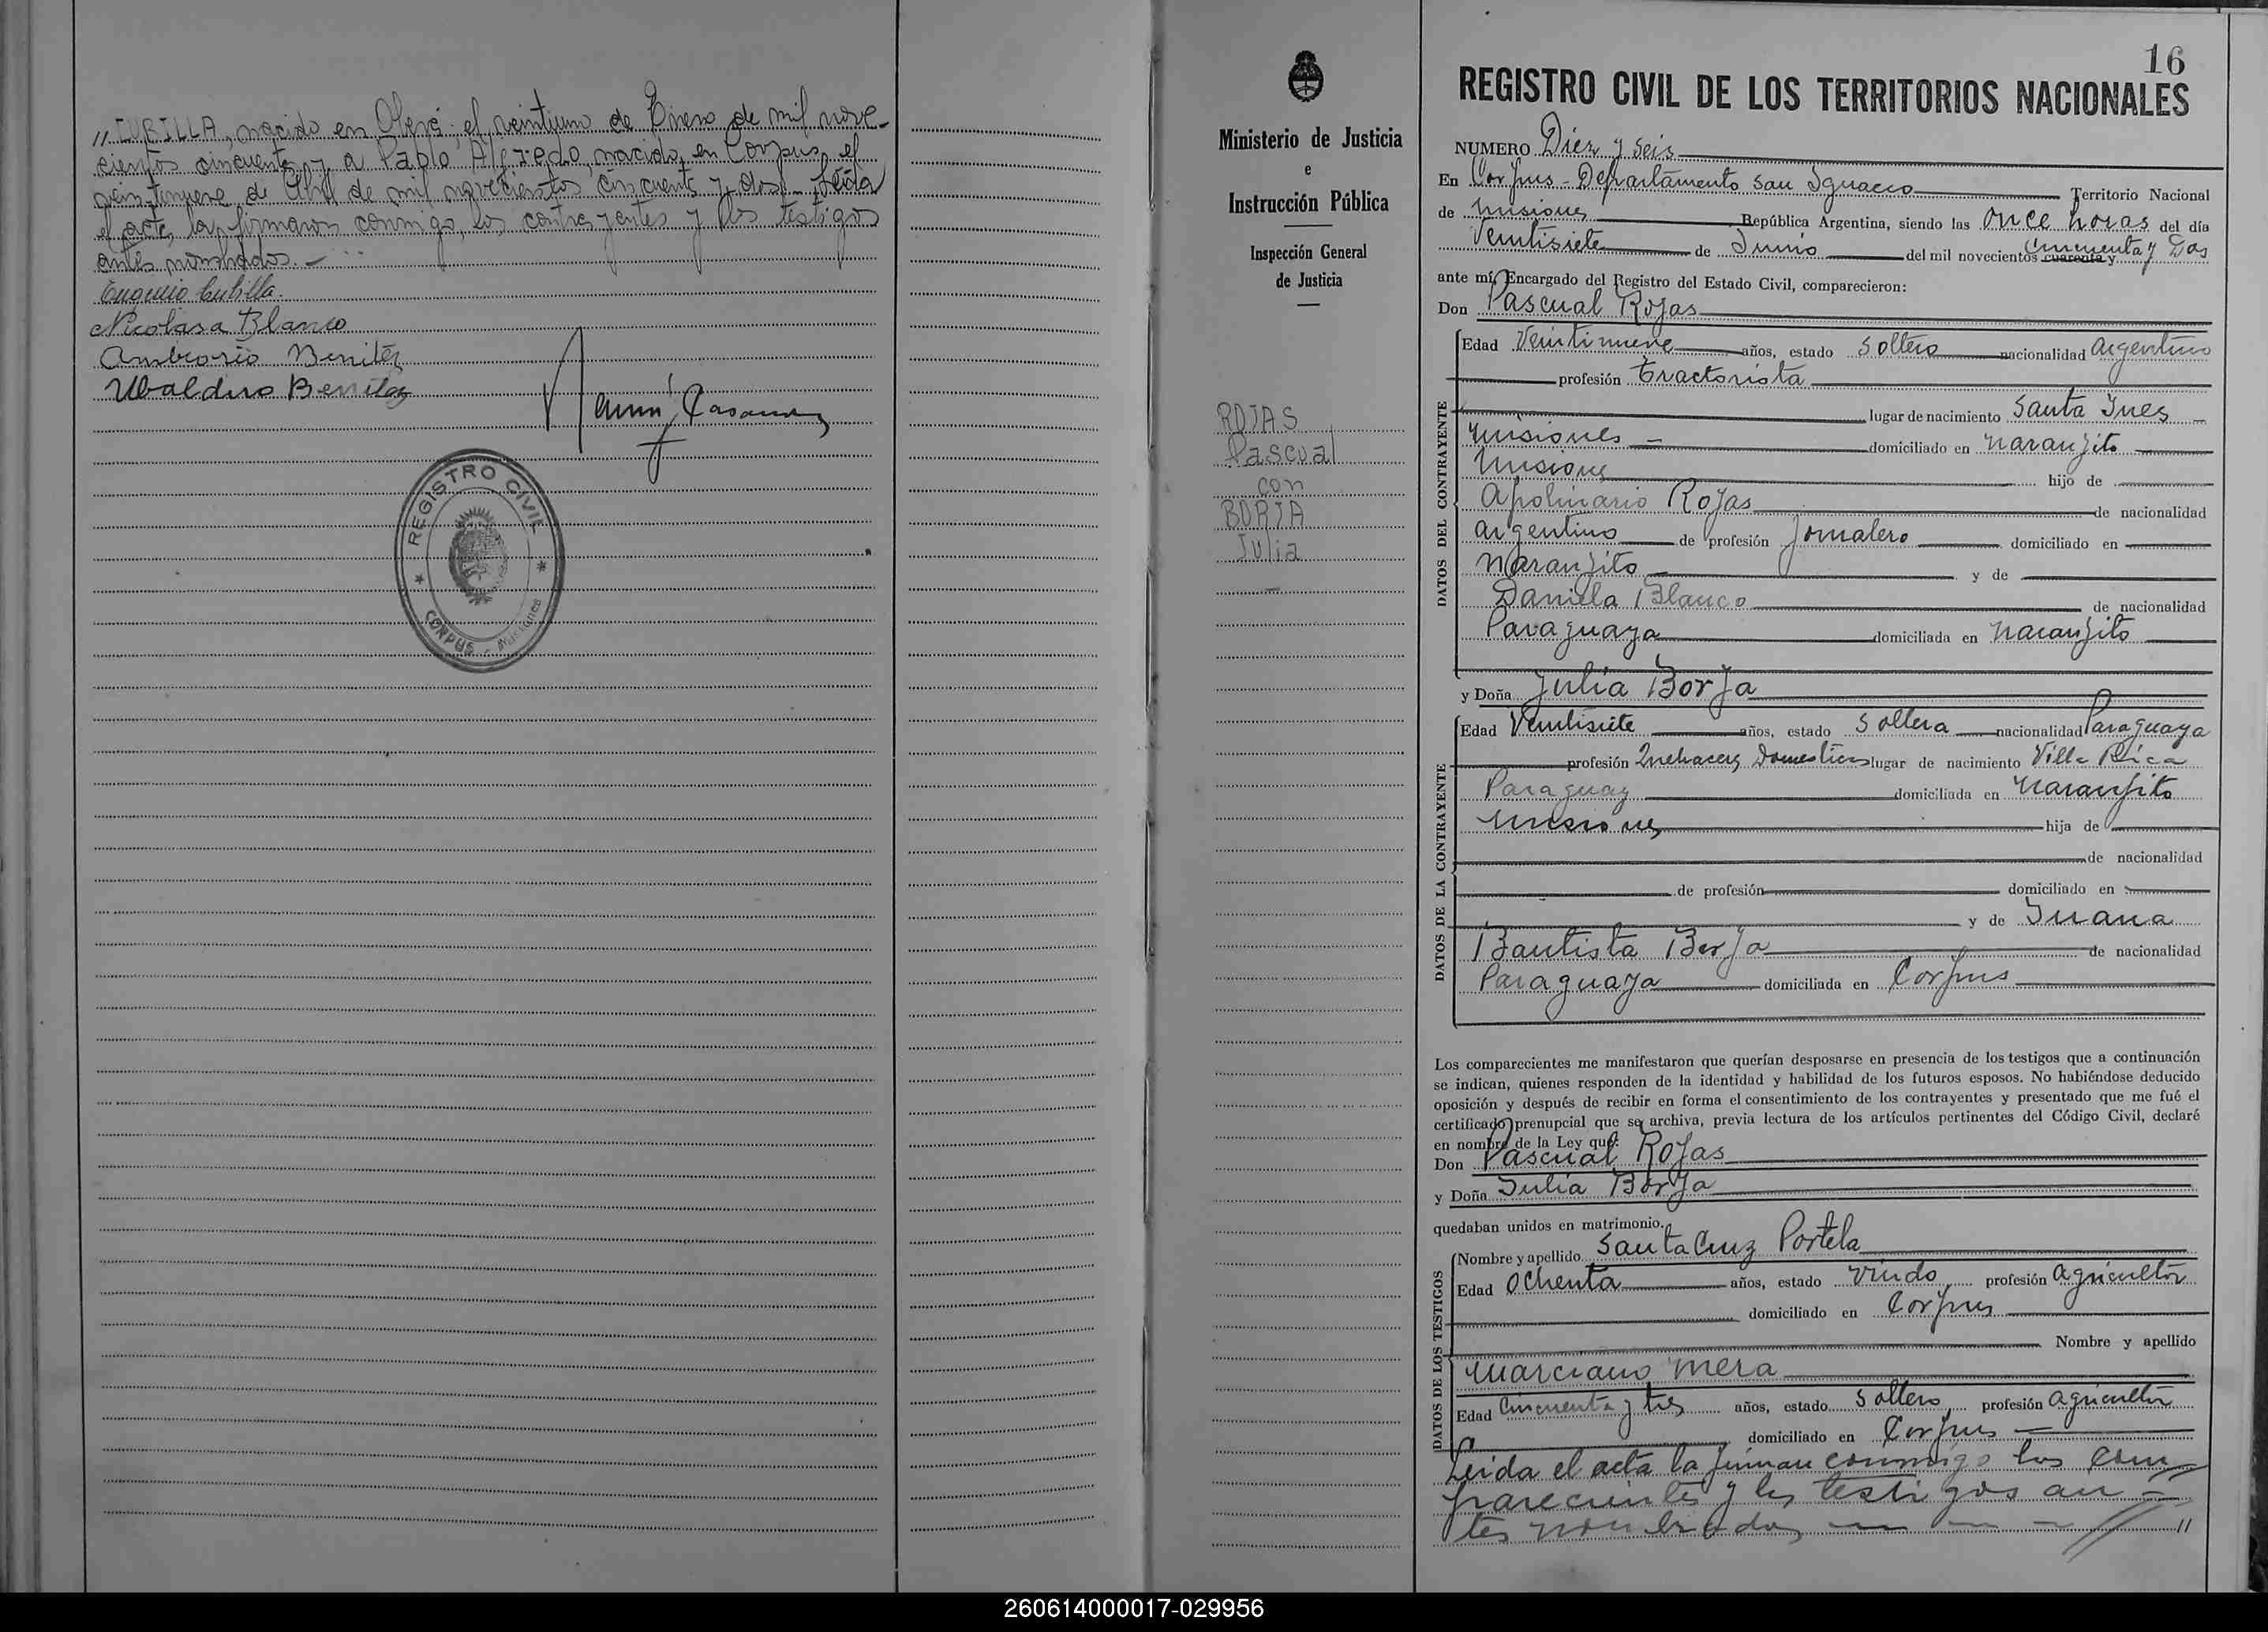 // CUBILLA, nacido en Oberá el veintiuno de Enero de mil nove-
cientos cincuenta y a Pablo Alfredo, nacido en Corpus el
veintinueve de de mil novecientos cincuenta y dos - Leída
el acta, la firmaron conmigo, los contrayentes y los testigos
antes nombrados. -
Eugenio Cubilla.
Nicolasa Blanco
Ambrosio Benitez
Ubaldino Benitez
REGISTRO CIVIL
CORPUS - Misiones
Ministerio de Justicia
e
Instrucción Pública
Inspección General
de Justicia
ROJAS
Pascual
con
BORJA
Julia
16
REGISTRO CIVIL DE LOS TERRITORIOS NACIONALES
NUMERO Diez y seis
En Corpus - Departamento San Ignacio Territorio Nacional
de Misiones República Argentina, siendo las Once horas del día
Veintisiete de Junio del mil novecientos cuarenta y Cincuenta y Dos
ante mí, Encargado del Registro del Estado Civil, comparecieron:
Don Pascual Rojas
DATOS DEL CONTRAYENTE
Edad Veintinueve años, estado Soltero nacionalidad Argentino
profesión Tractorista
lugar de nacimiento Santa Ines
Misiones - domiciliado en Naranjito
Misiones hijo de
Apolinario Rojas de nacionalidad
Argentino de profesión Jornalero domiciliado en
Naranjito y de
Daniela Blanco de nacionalidad
Paraguaya domiciliada en Naranjito
y Doña Julia Borja
DATOS DE LA CONTRAYENTE
Edad Veintisiete años, estado Soltera nacionalidad Paraguaya
profesión Quehaceres Domesticos lugar de nacimiento Villa Rica
Paraguay domiciliada en Naranjito
Misiones hija de
de nacionalidad
de profesión domiciliado en
y de Juana
Bautista Borja de nacionalidad
Paraguaya domiciliada en Corpus
Los comparecientes me manifestaron que querían desposarse en presencia de los testigos que a continuación
se indican, quienes responden de la identidad y habilidad de los futuros esposos. No habiéndose deducido
oposición y después de recibir en forma el consentimiento de los contrayentes y presentado que me fué el
certificado prenupcial que se archiva, previa lectura de los artículos pertinentes del Código Civil, declaré
en nombre de la Ley que:
Don Pascual Rojas
y Doña Julia Borja
quedaban unidos en matrimonio.
DATOS DE LOS TESTIGOS
Nombre y apellido Santa Cruz Portela
Edad Ochenta años, estado Viudo profesión Agricultor
domiciliado en Corpus
Nombre y apellido
Marciano Mera
Edad Cincuenta y tres años, estado Soltero profesión Agricultor
domiciliado en Corpus
Leida el acta la firman conmigo los com-
parecientes y los testigos an-
tes nombrados //
260614000017-029956